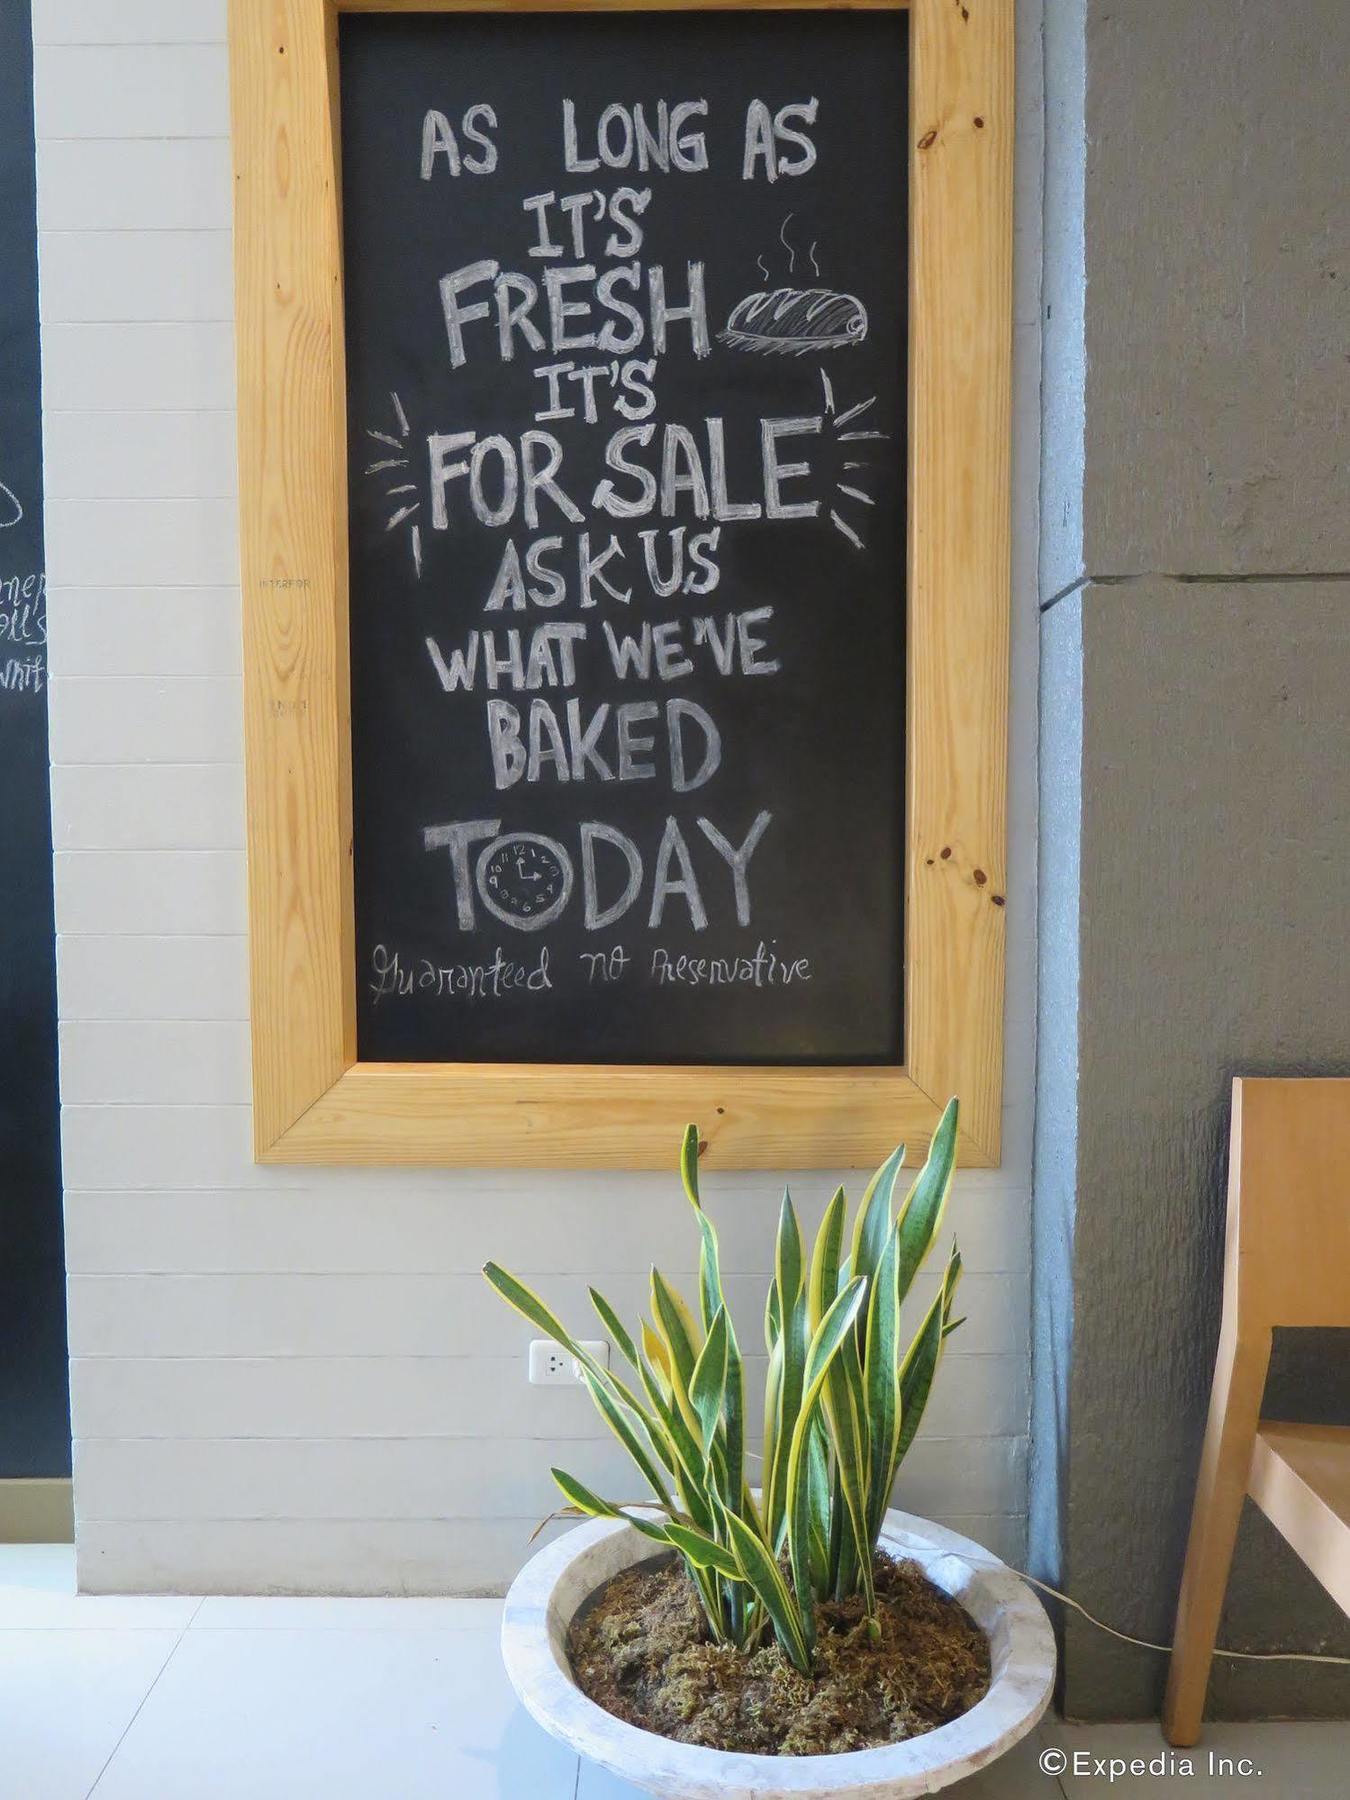 AS LONG AS
IT'S
FRESH
IT'S
FOR SALE
ASK US
WHAT WE'VE
BAKED
TODAY
Guaranteed no Preservative
INTERFOR
©Expedia Inc.